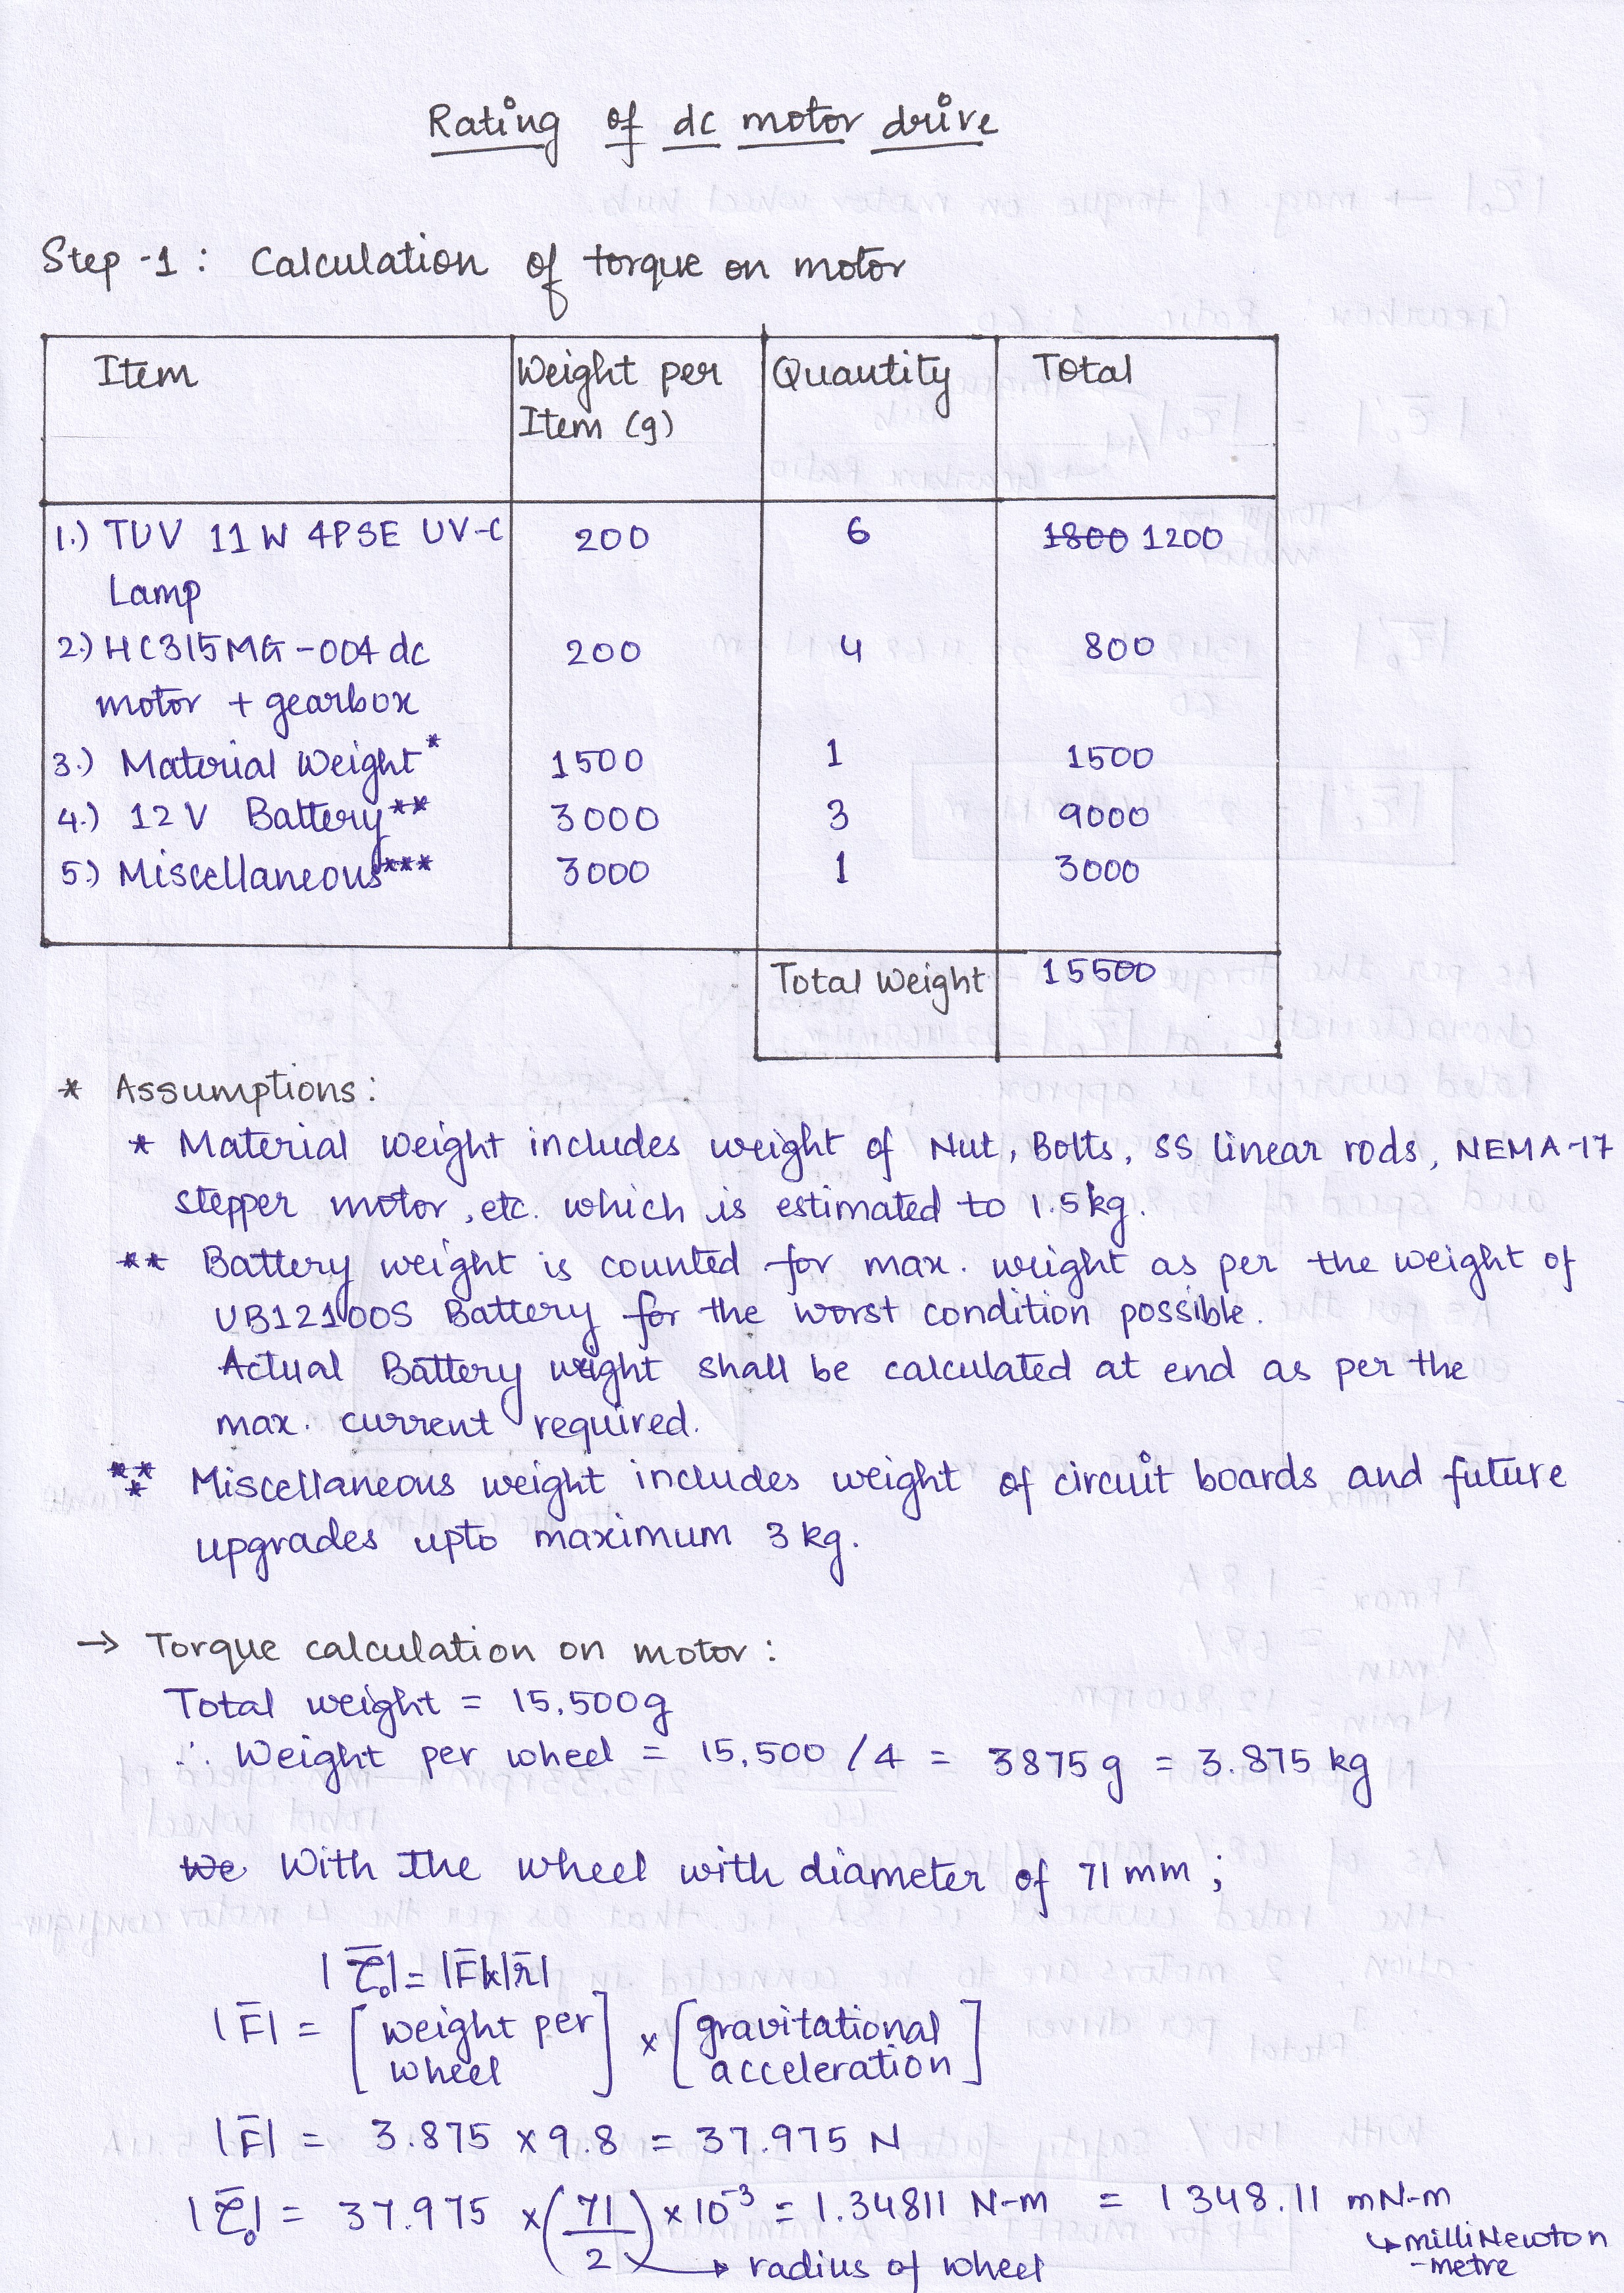 Rating of dc motor drive
Step-1: Calculation of torque on motor
Item
Weight per Item (g)
Quantity
Total
1.) TUV 11W 4PSE UV-C Lamp
200
6
1800 1200
2.) HC315MG-004 dc motor + gearbox
200
4
800
3.) Material Weight*
1500
1
1500
4.) 12V Battery**
3000
3
9000
5.) Miscellaneous***
3000
1
3000
Total Weight
15500
* Assumptions:
* Material weight includes weight of Nut, Bolts, SS linear rods, NEMA-17
stepper motor, etc. which is estimated to 1.5kg.
** Battery weight is counted for max. weight as per the weight of
UB12100S Battery for the worst condition possible.
Actual Battery weight shall be calculated at end as per the
max. current required.
*** Miscellaneous weight includes weight of circuit boards and future
upgrades upto maximum 3 kg.
→ Torque calculation on motor:
Total weight = 15,500g
∴ Weight per wheel = 15,500 / 4 = 3875 g = 3.875 kg
We With the wheel with diameter of 71 mm;
|τ̄₀| = |F̄|x|r̄|
|F̄| = [weight per wheel] x [gravitational acceleration]
|F̄| = 3.875 x 9.8 = 37.975 N
|τ̄₀| = 37.975 x (71/2) x 10⁻³ = 1.34811 N-m = 1348.11 mN-m
→ radius of wheel
↳ milliNewton
-metre